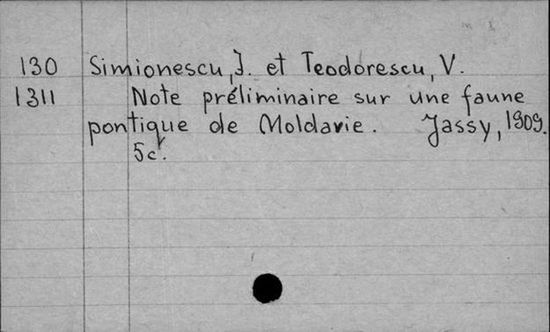 130 Simionescu, J. et Teodorescu, V.
1311 Note préliminaire sur une faune
pontique de Moldavie. Jassy, 1909.
5c.